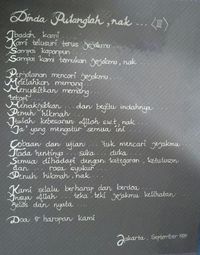 Dinda Pulanglah, nak ... (II)
Ibadah kami ...
Kami telusuri terus jejakmu ...
Sampai kapanpun ...
Sampai kami temukan jejakmu, nak
Perjalanan mencari jejakmu ...
Melelahkan memang
Menyakitkan memang
tetapi
Menakjubkan ... dan begitu indahnya
Penuh hikmah ...
Itulah kebesaran Allah swt, nak ...
"Ia" yang mengatur semua ini
Cobaan dan ujian ... 'tuk mencari jejakmu
Tiada hentinya ... suka ... duka
Semua dihadapi dengan ketegaran, ketulusan
dan ... rasa syukur ...
Penuh hikmah, nak
Kami selalu berharap dan berdoa ...
Insya Allah ... teka teki jejakmu kelihatan
Jelas dan nyata ...
Doa & harapan kami
Jakarta, September